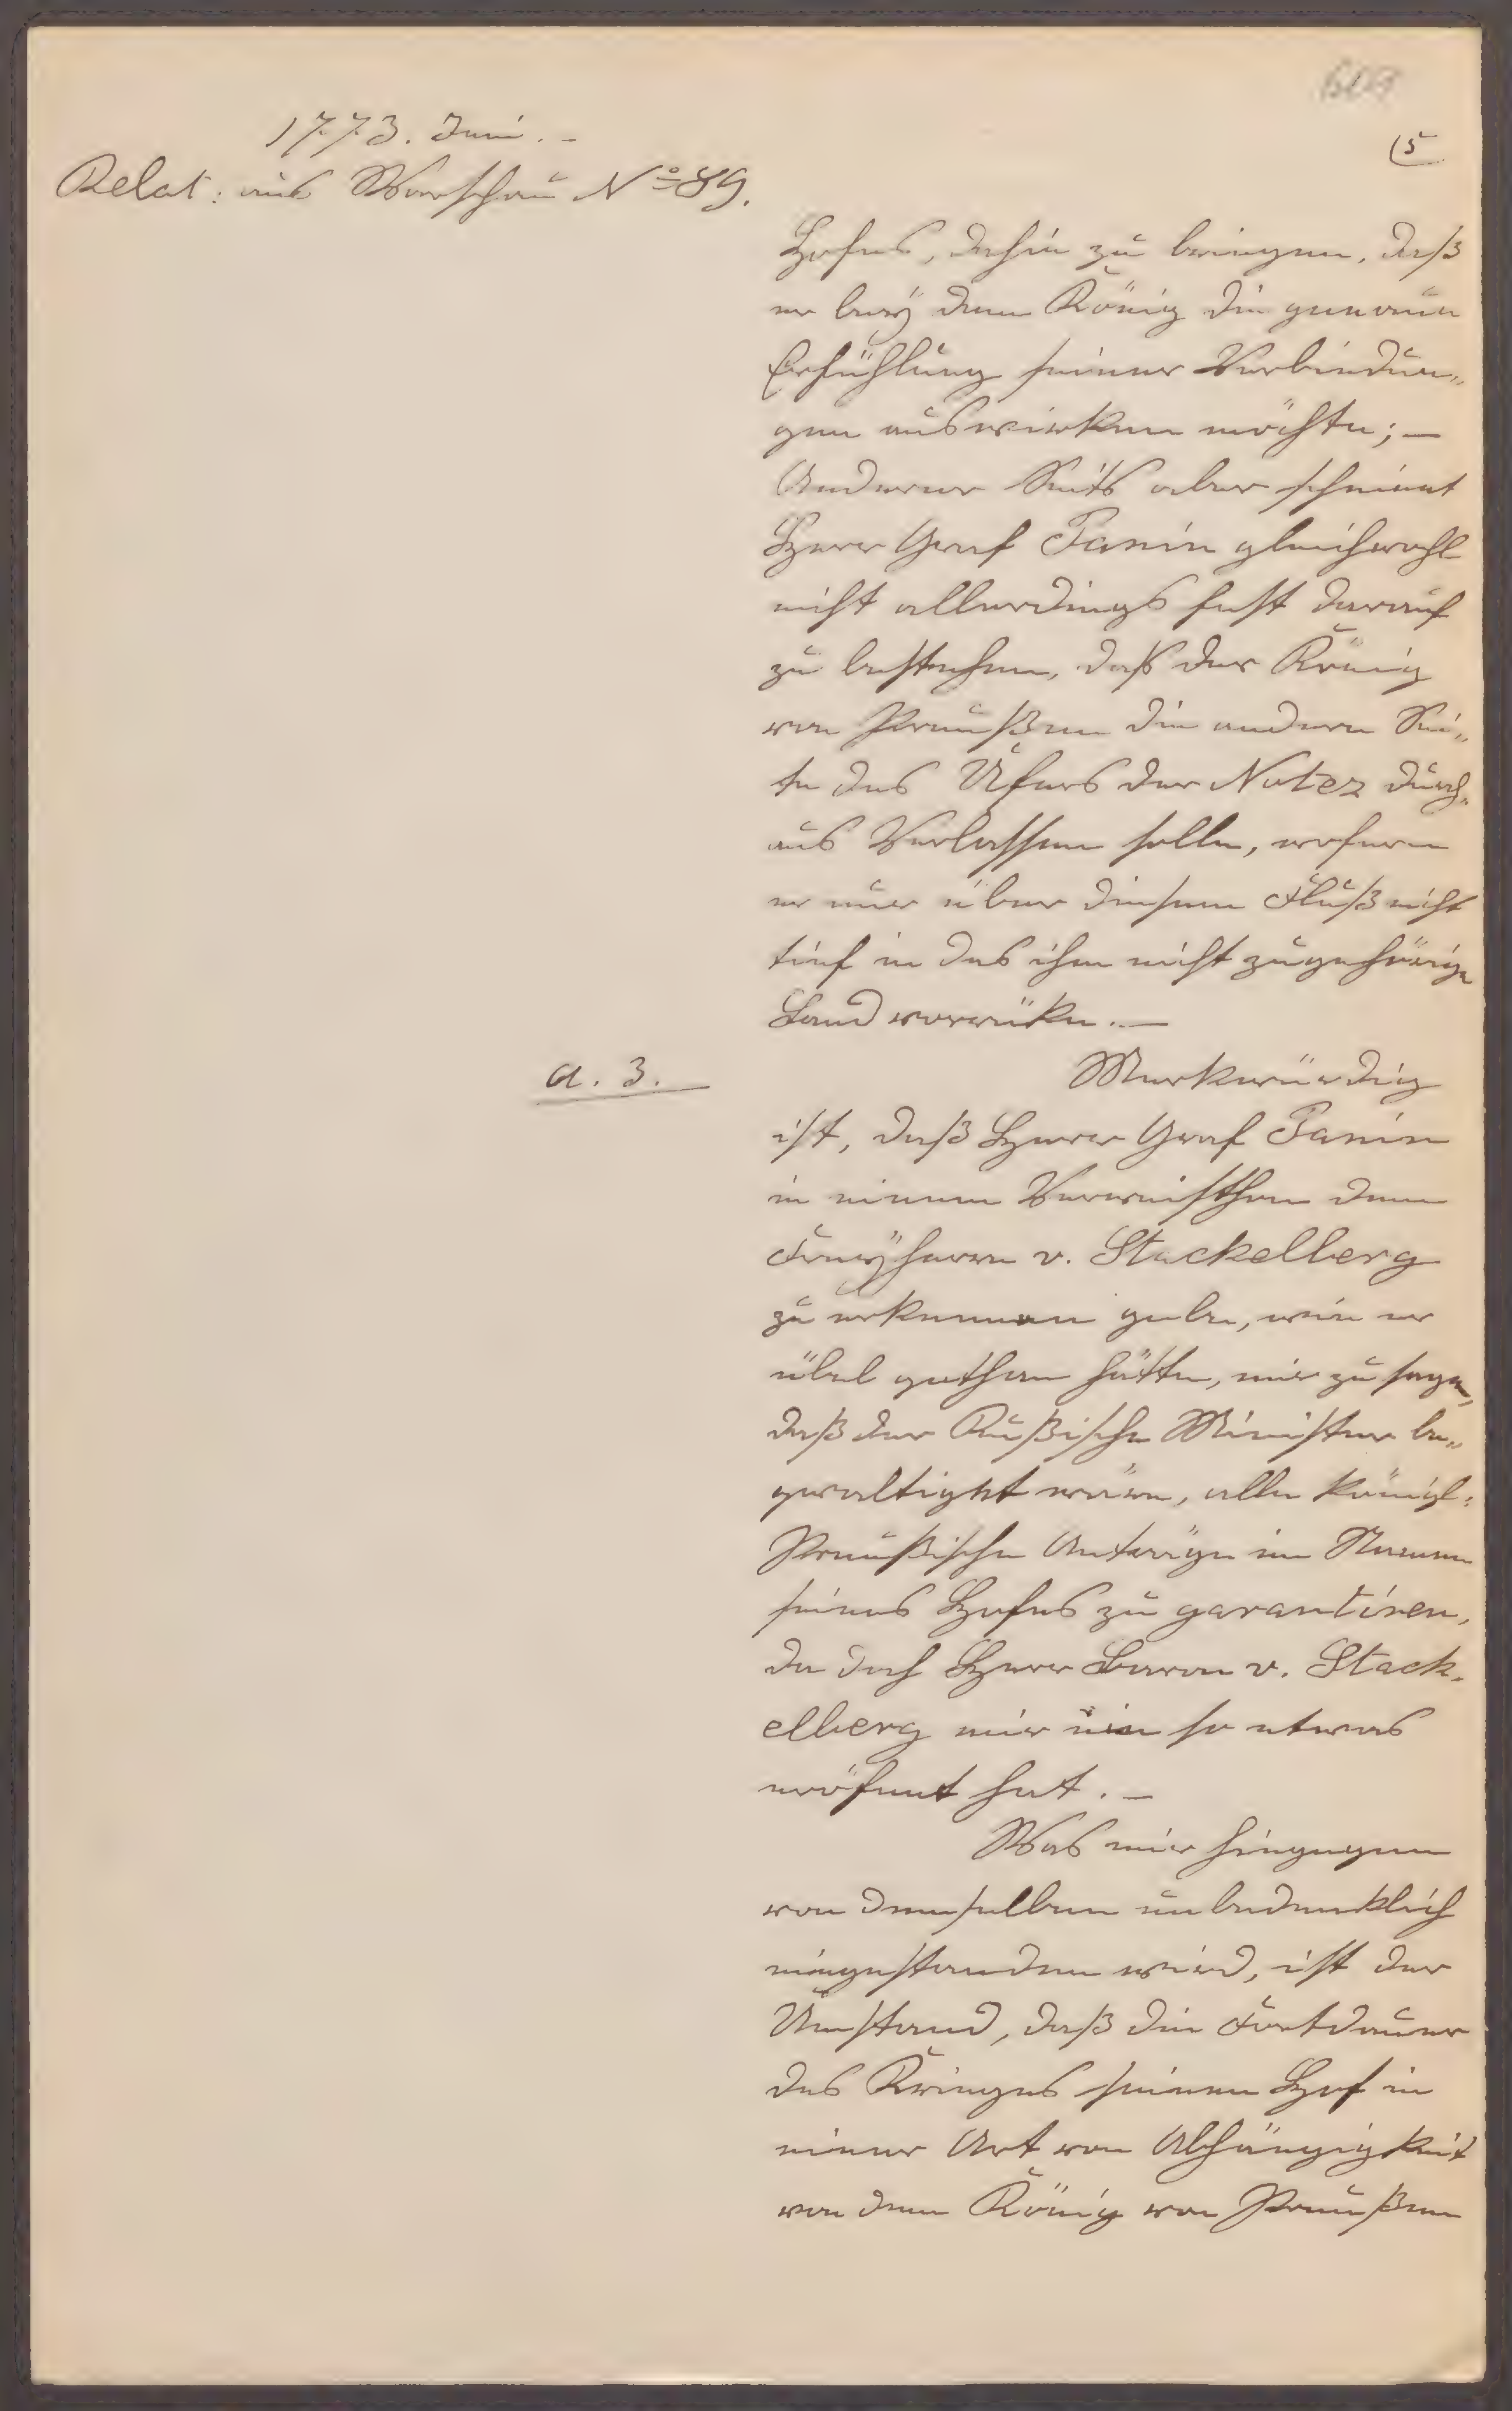 603
1773. Juni. –
(5
Relat: aus Warschau No 89.
Hofes, dahin zu bringen, daß
er beÿ dem König die genaue
Erfühlung seiner Verbindun„
gen auswirken möchte; —
Anderer Seits aber scheinet
Herr Graf Panin gleichwohl
nicht allerdings fest darauf
zu bestehen, daß der König
von Preußen die andere Sei„
te des Ufers der Notez durch„
aus Verlassen solle, wofern
er nur über diesem Fluß nicht
tief in das ihm nicht zugehörige
Land vorrüke. —
a. 3.
Merkwürdig
ist, daß Herr Graf Panin
in einem Verweisthen dem
Freÿherrn v. Stackelberg
zu erkennen gebe, wie er
übel gethan hätte, mir zu sagen,
daß der Rußische Minister be„
gwaltiget wäre, alle königl:
Preußische Anträge im Namen
seines Hofes zu garantiren,
da doch Herr Baron v. Stack„
elberg mir nie so etwas
eröfnet hat. —
Was mir hingegen
von demselben unbedenklich
eingestanden wird, ist der
Umstand, daß die Fortdauer
des Krieges seinen Hof in
einer Art von Abhängigkeit
von dem König von Preußen